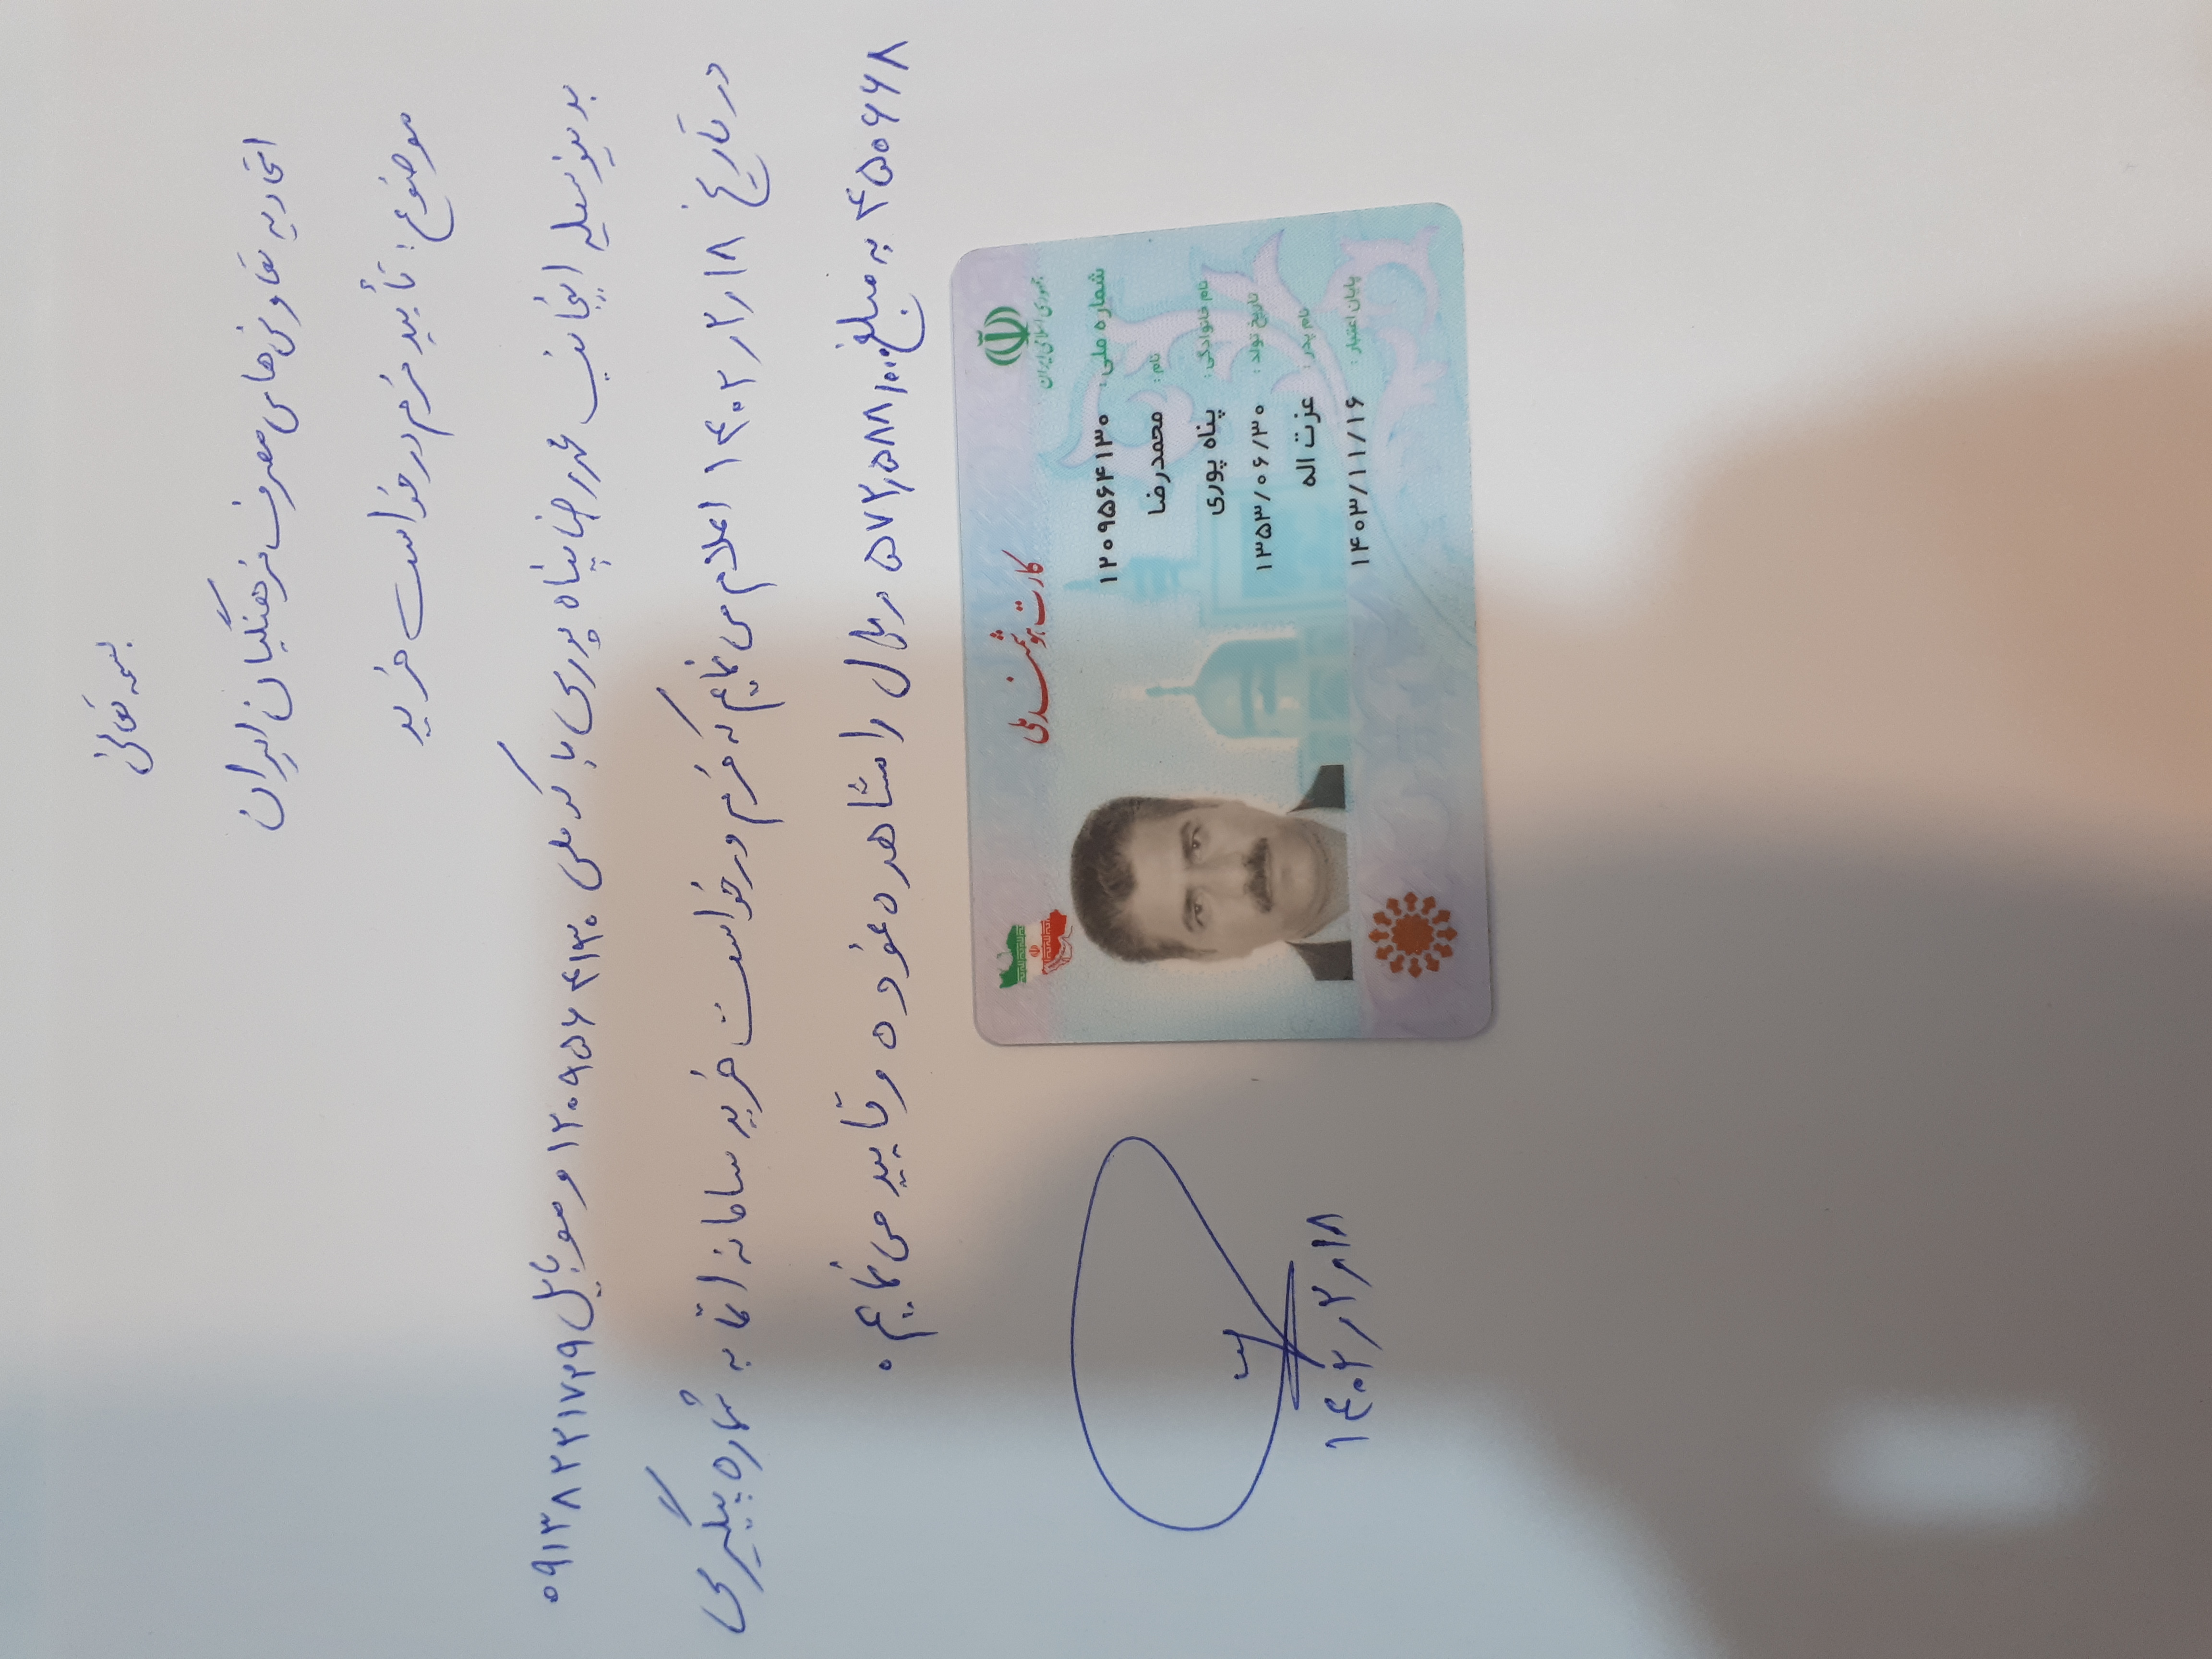 بسمه تعالی
اتحادیه تعاونی های مصرف فرهنگیان ایران
موضوع : تأیید فرم درخواست خرید
بدینوسیله اینجانب محمدرضا پناه پوری با کد ملی ۱۲۰۹۵۶۴۱۳۰ و موبایل ۰۹۱۳۸۲۲۱۷۲۹
در تاریخ ۱۴۰۲٫۲٫۱۸ اعلام می نمایم که فرم درخواست خرید سامانه اتما به شماره پیگیری
۴۵۰۶۶۸ به مبلغ ۵۷۲٫۵۸۸٫۰۰۰ ریال را مشاهده نموده و تایید می نمایم .
جمهوری اسلامی ایران
کارت هوشمند ملی
شماره ملی : ۱۲۰۹۵۶۴۱۳۰
نام : محمدرضا
نام خانوادگی : پناه پوری
تاریخ تولد : ۱۳۵۳/۰۶/۳۰
نام پدر : عزت اله
پایان اعتبار : ۱۴۰۳/۱۱/۱۶
۱۴۰۲٫۲٫۱۸